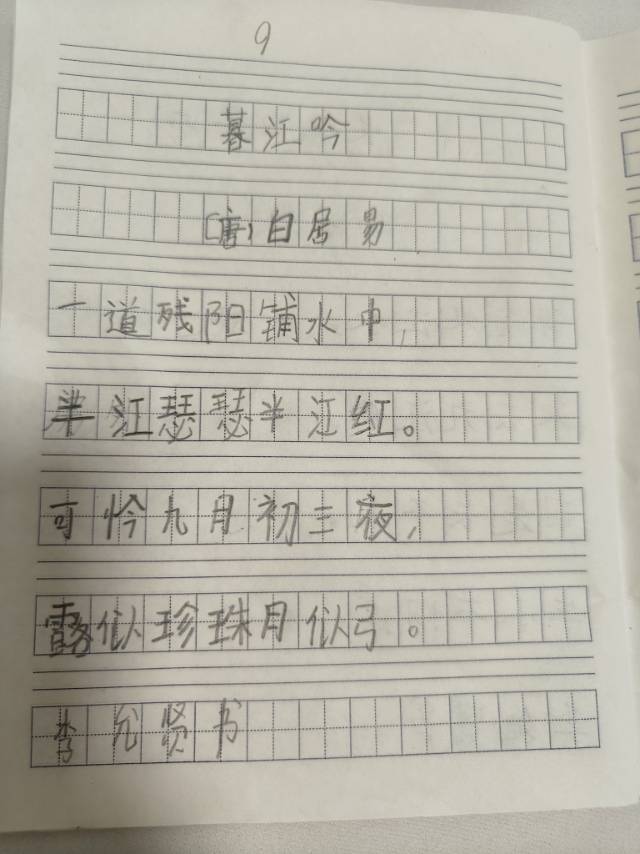 9
暮江吟
[唐]白居易
一道残阳铺水中,
半江瑟瑟半江红。
可怜九月初三夜,
露似珍珠月似弓。
李允贤书